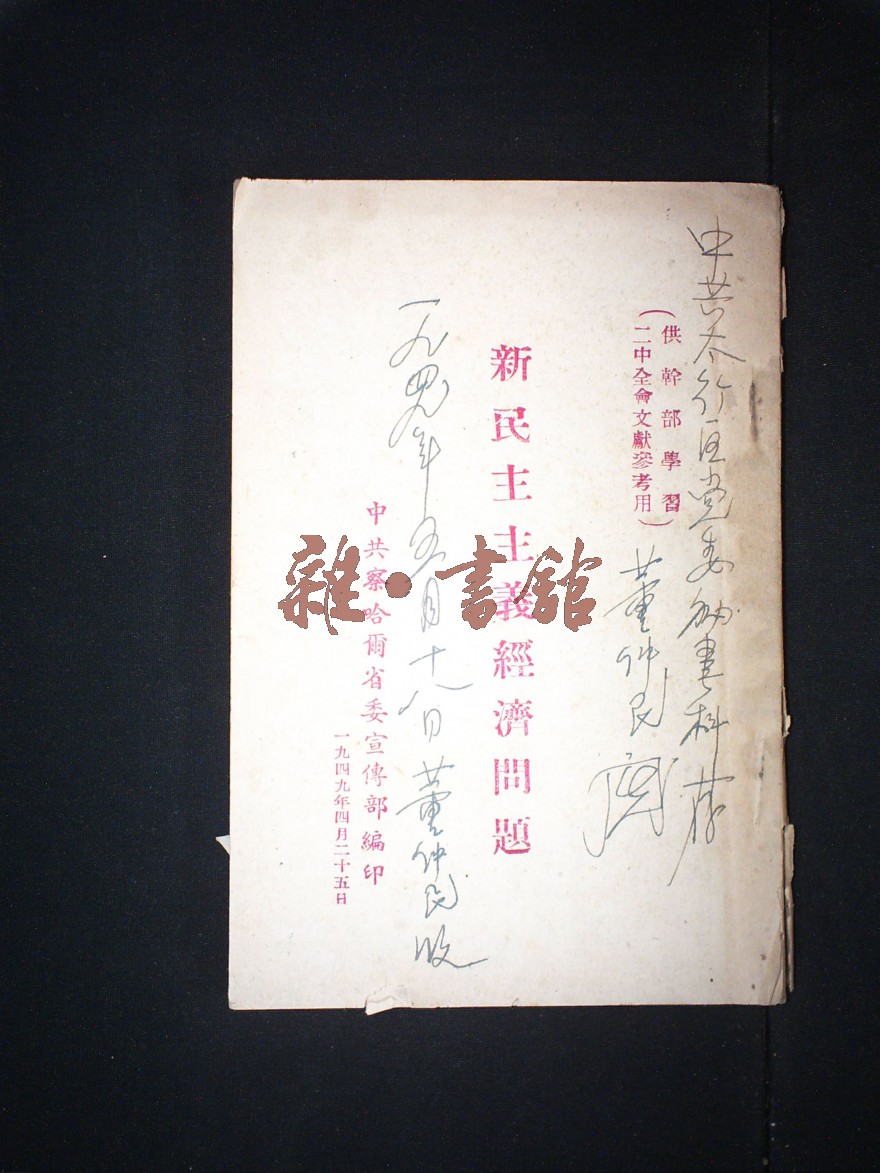 中共太行区党委秘書科存
董仲民
(供幹部學習
二中全會文獻參考用)
新民主主義經濟問題
一九四九年五月十八日董仲民收
中共察哈爾省委宣傳部編印
一九四九年四月二十五日
雜·書館